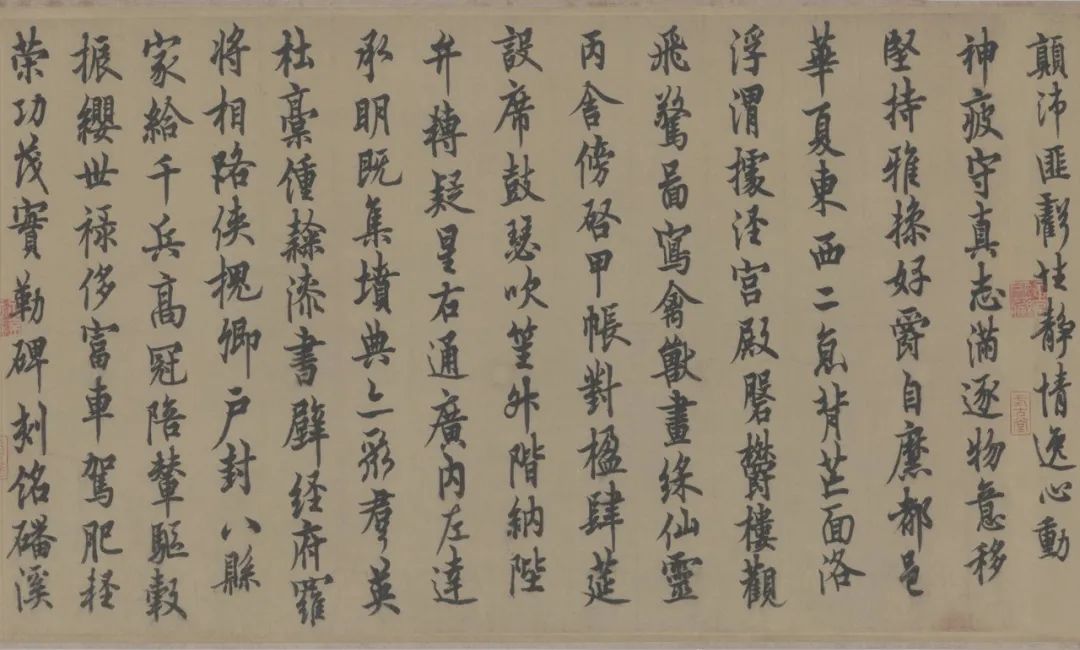 顛沛匪虧性靜情逸心動
神疲守真志滿逐物意移
堅持雅操好爵自縻都邑
華夏東西二京背芒面洛
浮渭據涇宮殿磐欝樓觀
飛驚啚寫禽獸畫綵仙靈
丙舍傍啓甲帳對楹肆莚
設席鼓瑟吹笙外階納陛
弁轉疑星右通廣內左達
承明既集墳典亦聚羣英
杜稾鍾隸漆書壁經府羅
將相路俠槐卿戶封八縣
家給千兵高冠陪輦驅轂
振纓世祿侈富車駕肥輕
策功茂實勒碑刻銘磻溪